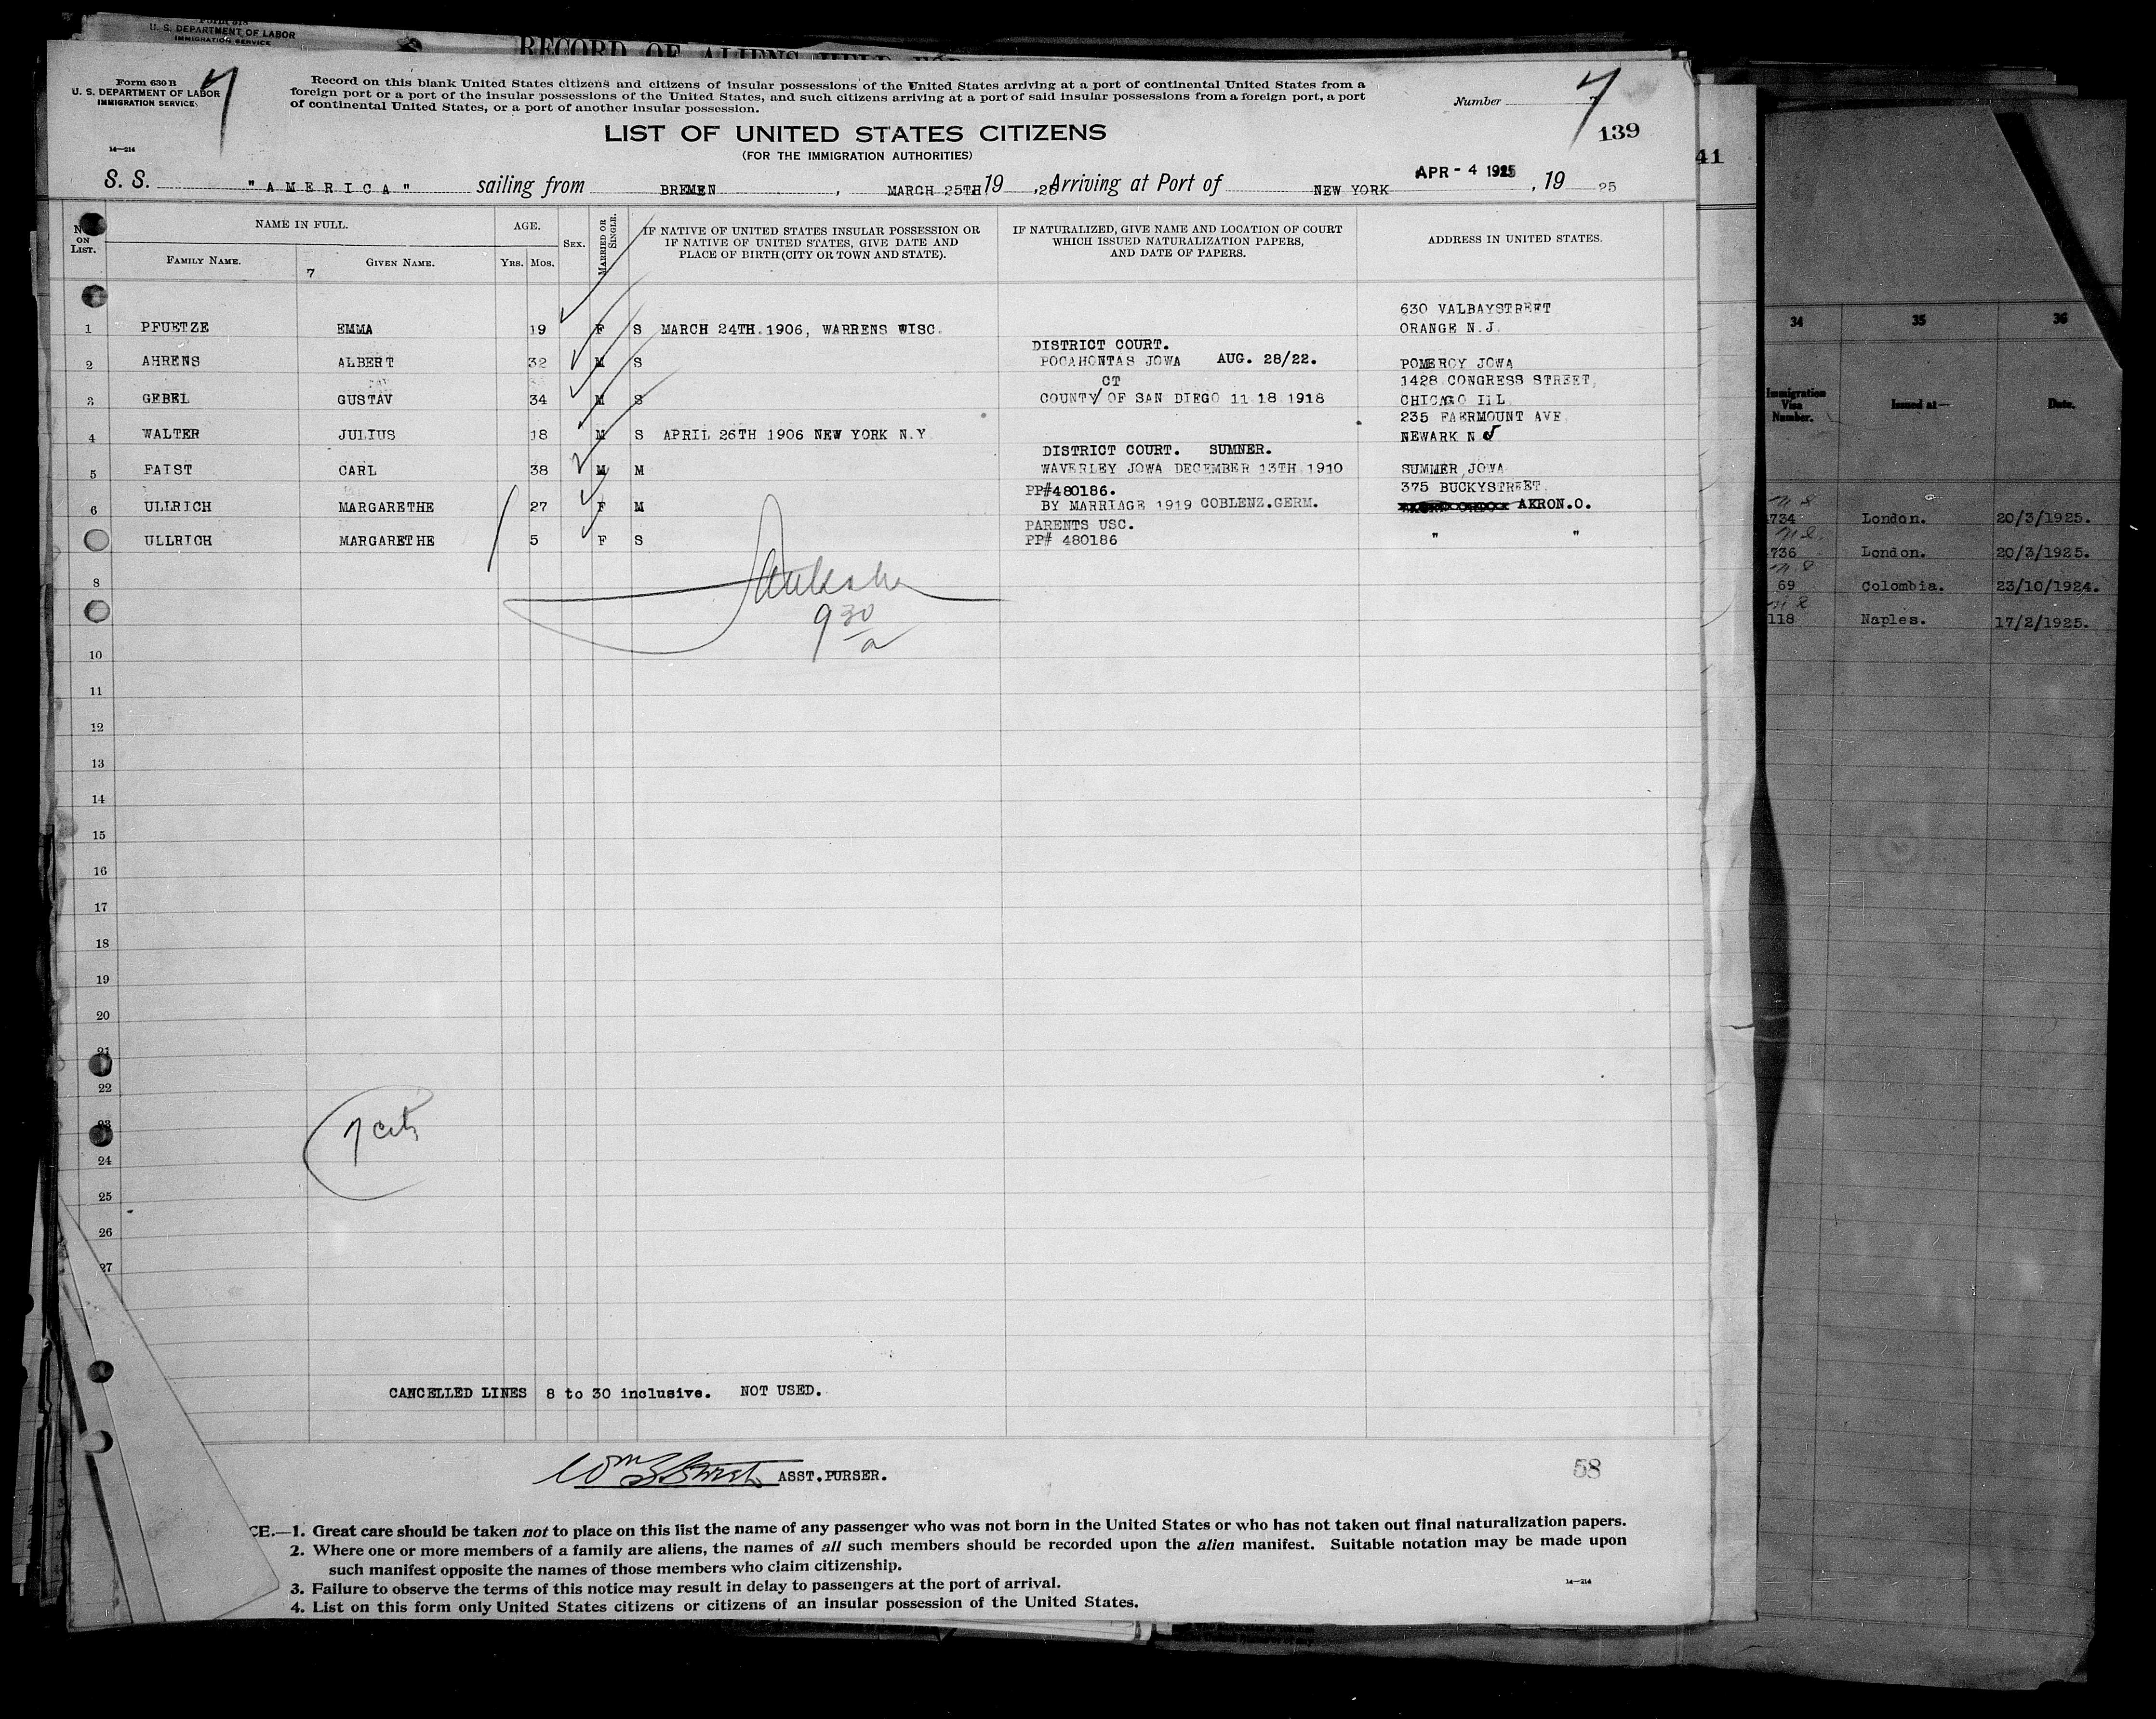 Form 618
U. S. DEPARTMENT OF LABOR
IMMIGRATION SERVICE
RECORD OF ALIENS HELD FOR
Form 630 B
U. S. DEPARTMENT OF LABOR
IMMIGRATION SERVICE
7
Record on this blank United States citizens and citizens of insular possessions of the United States arriving at a port of continental United States from a
foreign port or a port of the insular possessions of the United States, and such citizens arriving at a port of said insular possessions from a foreign port, a port
of continental United States, or a port of another insular possession.
Number 7
7
139
41
14—214
LIST OF UNITED STATES CITIZENS
(FOR THE IMMIGRATION AUTHORITIES)
S. S. "AMERICA" sailing from BREMEN, MARCH 25TH 19, 25 Arriving at Port of NEW YORK APR - 4 1925, 19 25
No. ON LIST.
NAME IN FULL.
FAMILY NAME.
7 GIVEN NAME.
AGE.
YRS. MOS.
SEX.
MARRIED OR SINGLE.
IF NATIVE OF UNITED STATES INSULAR POSSESSION OR
IF NATIVE OF UNITED STATES, GIVE DATE AND
PLACE OF BIRTH (CITY OR TOWN AND STATE).
IF NATURALIZED, GIVE NAME AND LOCATION OF COURT
WHICH ISSUED NATURALIZATION PAPERS,
AND DATE OF PAPERS.
ADDRESS IN UNITED STATES.
630 VALBAYSTREET
1 PFUETZE EMMA 19 F S MARCH 24TH.1906, WARRENS WISC. ORANGE N.J.
DISTRICT COURT.
2 AHRENS ALBERT 32 M S POCAHONTAS JOWA AUG. 28/22. POMEROY JOWA
CT 1428 CONGRESS STREET,
3 GEBEL GUSTAV 34 M S COUNTY OF SAN DIEGO 11 18 1918 CHICAGO ILL
235 FAERMOUNT AVE
4 WALTER JULIUS 18 M S APRIL 26TH 1906 NEW YORK N.Y NEWARK N J
DISTRICT COURT. SUMNER.
5 FAIST CARL 38 M M WAVERLEY JOWA DECEMBER 13TH 1910 SUMMER JOWA
PP#480186. 375 BUCKYSTREET
6 ULLRICH MARGARETHE 27 F M BY MARRIAGE 1919 COBLENZ.GERM. AKRON.O.
PARENTS USC.
ULLRICH MARGARETHE 5 F S PP# 480186 " "
8
9 30
a
10
11
12
13
14
15
16
17
18
19
20
21
22
23
7 cits
24
25
26
27
CANCELLED LINES 8 to 30 inclusive. NOT USED.
ASST.PURSER.
58
CE.—1. Great care should be taken not to place on this list the name of any passenger who was not born in the United States or who has not taken out final naturalization papers.
2. Where one or more members of a family are aliens, the names of all such members should be recorded upon the alien manifest. Suitable notation may be made upon
such manifest opposite the names of those members who claim citizenship.
3. Failure to observe the terms of this notice may result in delay to passengers at the port of arrival.
4. List on this form only United States citizens or citizens of an insular possession of the United States.
14—214
34 35 36
Immigration
Visa
Number.
Issued at—
Date.
734 London. 20/3/1925.
736 London. 20/3/1925.
69 Colombia. 23/10/1924.
118 Naples. 17/2/1925.